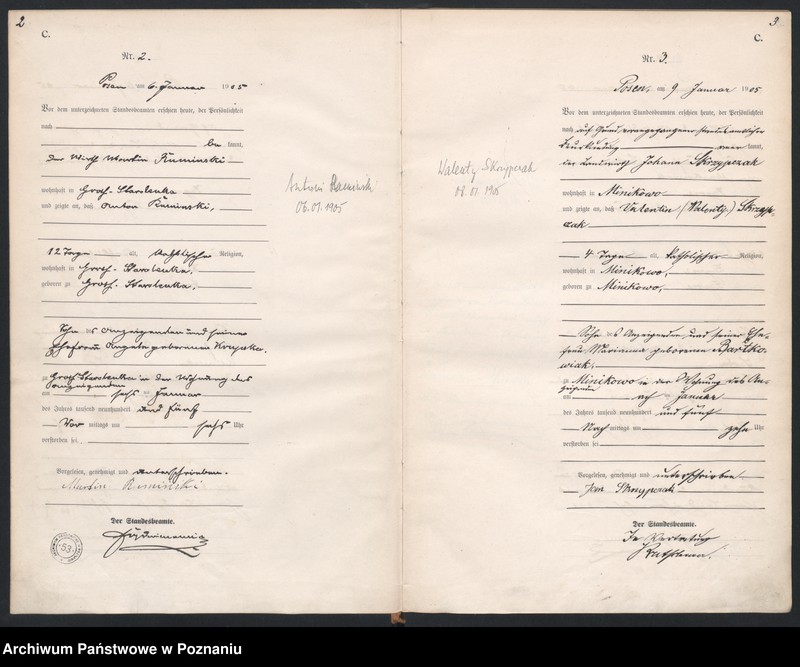 2
C.
Nr. 2.
Posen am 6. Januar 1905
Vor dem unterzeichneten Standesbeamten erschien heute, der Persönlichkeit
nach
be kannt,
der Wirth Martin Ruminski
wohnhaft in Groß-Starolenka
und zeigte an, daß Anton Ruminski,
12 Tage alt, katholischer Religion,
wohnhaft in Groß-Starolenka,
geboren zu Groß-Starolenka,
Sohn des Anzeigenden und seiner
Ehefrau Angela geborenen
zu Groß Starolenka in der Wohnung des
Anzeigenden
am sechs ten Januar
des Jahres tausend neunhundert und fünf
Vor mittags um sechs Uhr
verstorben sei.
Vorgelesen, genehmigt und unterschrieben.
Martin Rumiński
Der Standesbeamte.
53
Antoni Rumiński
06.01.1905
3
C.
Nr. 3.
Posen, am 9 Januar 1905
Vor dem unterzeichneten Standesbeamten erschien heute, der Persönlichkeit
nach auf Grund vorangegangener standesamtlicher
Beurkundung kannt,
der Landwirth Johann Skrzypczak
wohnhaft in Minikowo
und zeigte an, daß Valentin (Walenty) Skrzyp-
czak
4 Tage alt, katholischer Religion,
wohnhaft in Minikowo,
geboren zu Minikowo,
Sohn des Anzeigenden und seiner Ehe-
frau Marianna geborenen Bartko-
wiak,
zu Minikowo in der Wohnung des An-
zeigenden
am acht ten Januar
des Jahres tausend neunhundert und fünf
Nach mittags um zehn Uhr
verstorben sei.
Vorgelesen, genehmigt und unterschrieben
Jan Skrzypczak
Der Standesbeamte.
In Vertretung
Walenty Skrzypczak
08.01.1905
Archiwum Państwowe w Poznaniu